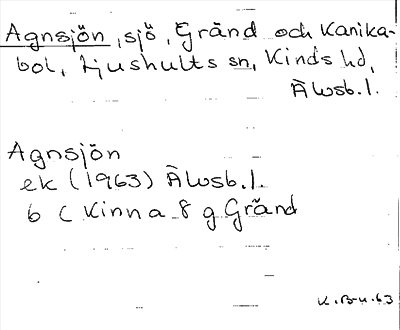 Agnsjön, sjö, Gränd och Kanika-
bol, Ljushults sn, Kinds hd,
Älvsb. l.
Agnsjön
ek (1963) Älvsb. l.
6 C Kinna 8 g Gränd
K. B-u. 63